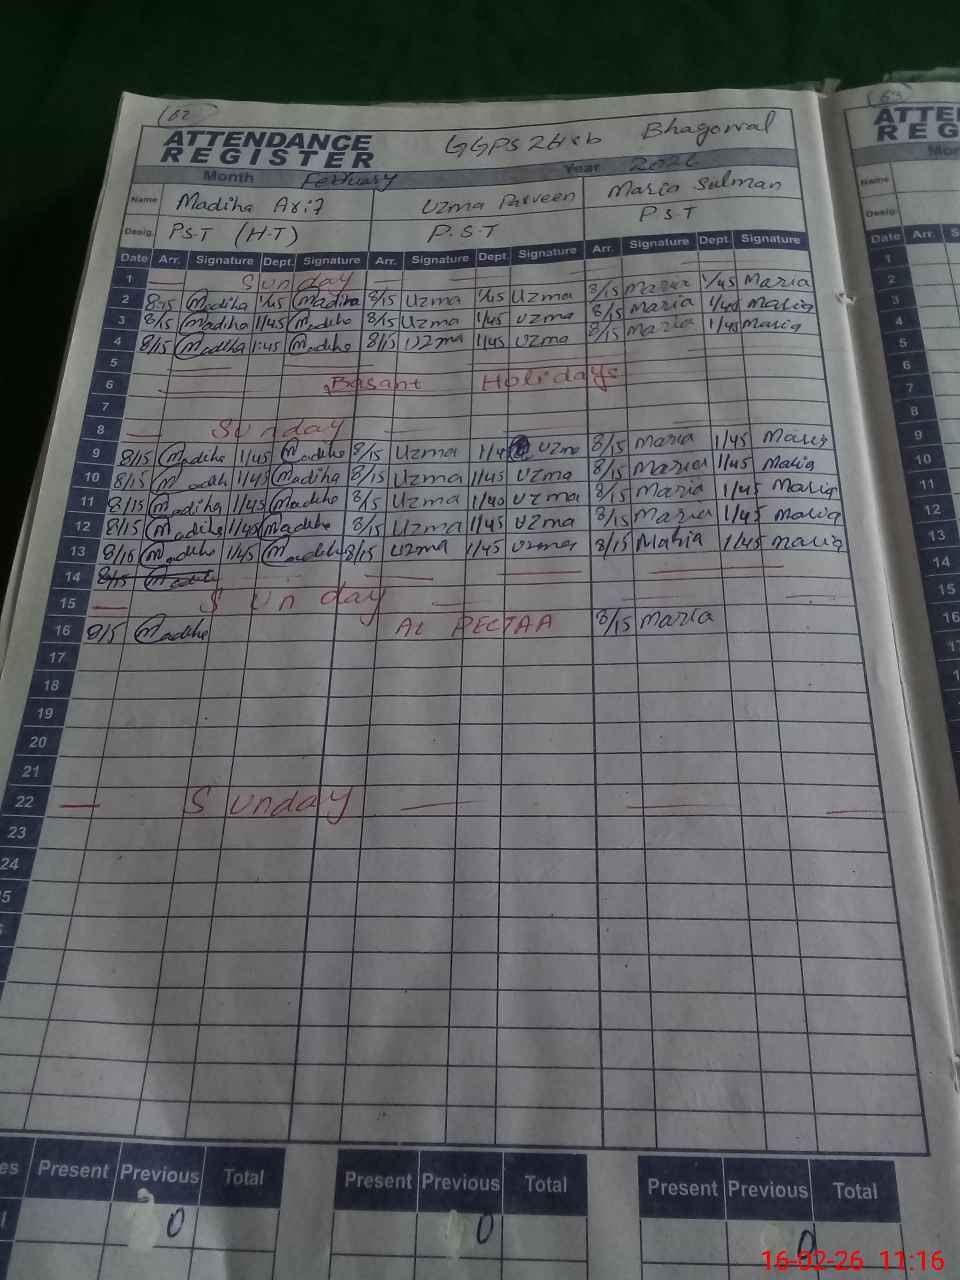 62
ATTENDANCE REGISTER GGPS 24 Bhagowal
Month February Year 2026
Name Madiha Arif Uzma Parveen Maria Sulman
Desig. P.S.T (H-T) P.S.T P.S.T
Date Arr. Signature Dept. Signature Arr. Signature Dept. Signature Arr. Signature Dept. Signature
1 Sunday
2 8/15 Madiha 1/45 Madiha 8/15 Uzma 1/45 Uzma 8/15 Maria 1/45 Maria
3 8/15 Madiha 1/45 Madiha 8/15 Uzma 1/45 Uzma 8/15 Maria 1/45 Maria
4 8/15 Madiha 1:45 Madiha 8/15 Uzma 1/45 Uzma 8/15 Maria 1/45 Maria
5
6 Basant Holidays
7
8 Sunday
9 8/15 Madiha 1/45 Madiha 8/15 Uzma Uzma 8/15 Maria 1/45 Maria
10 8/15 Madiha 1/45 Madiha 8/15 Uzma 1/45 Uzma 8/15 Maria 1/45 Maria
11 8/15 Madiha 1/45 Madiha 8/15 Uzma 1/40 Uzma 8/15 Maria 1/45 Maria
12 8/15 Madiha 1/45 Madiha 8/15 Uzma 1/45 Uzma 8/15 Maria 1/45 Maria
13 8/16 Madiha 1/45 Madiha 8/15 Uzma 1/45 Uzma 8/15 Maria 1/45 Maria
14 8/15 Madiha
15 Sunday
16 Madiha At PECTAA 8/15 Maria
17
18
19
20
21
22 Sunday
23
24
Present Previous Total Present Previous Total Present Previous Total
0 0 0
63
ATTEN
REG
Name
Desig.
Date Arr.
1
2
3
4
5
6
7
8
9
10
11
12
13
14
15
16
16-02-26 11:16